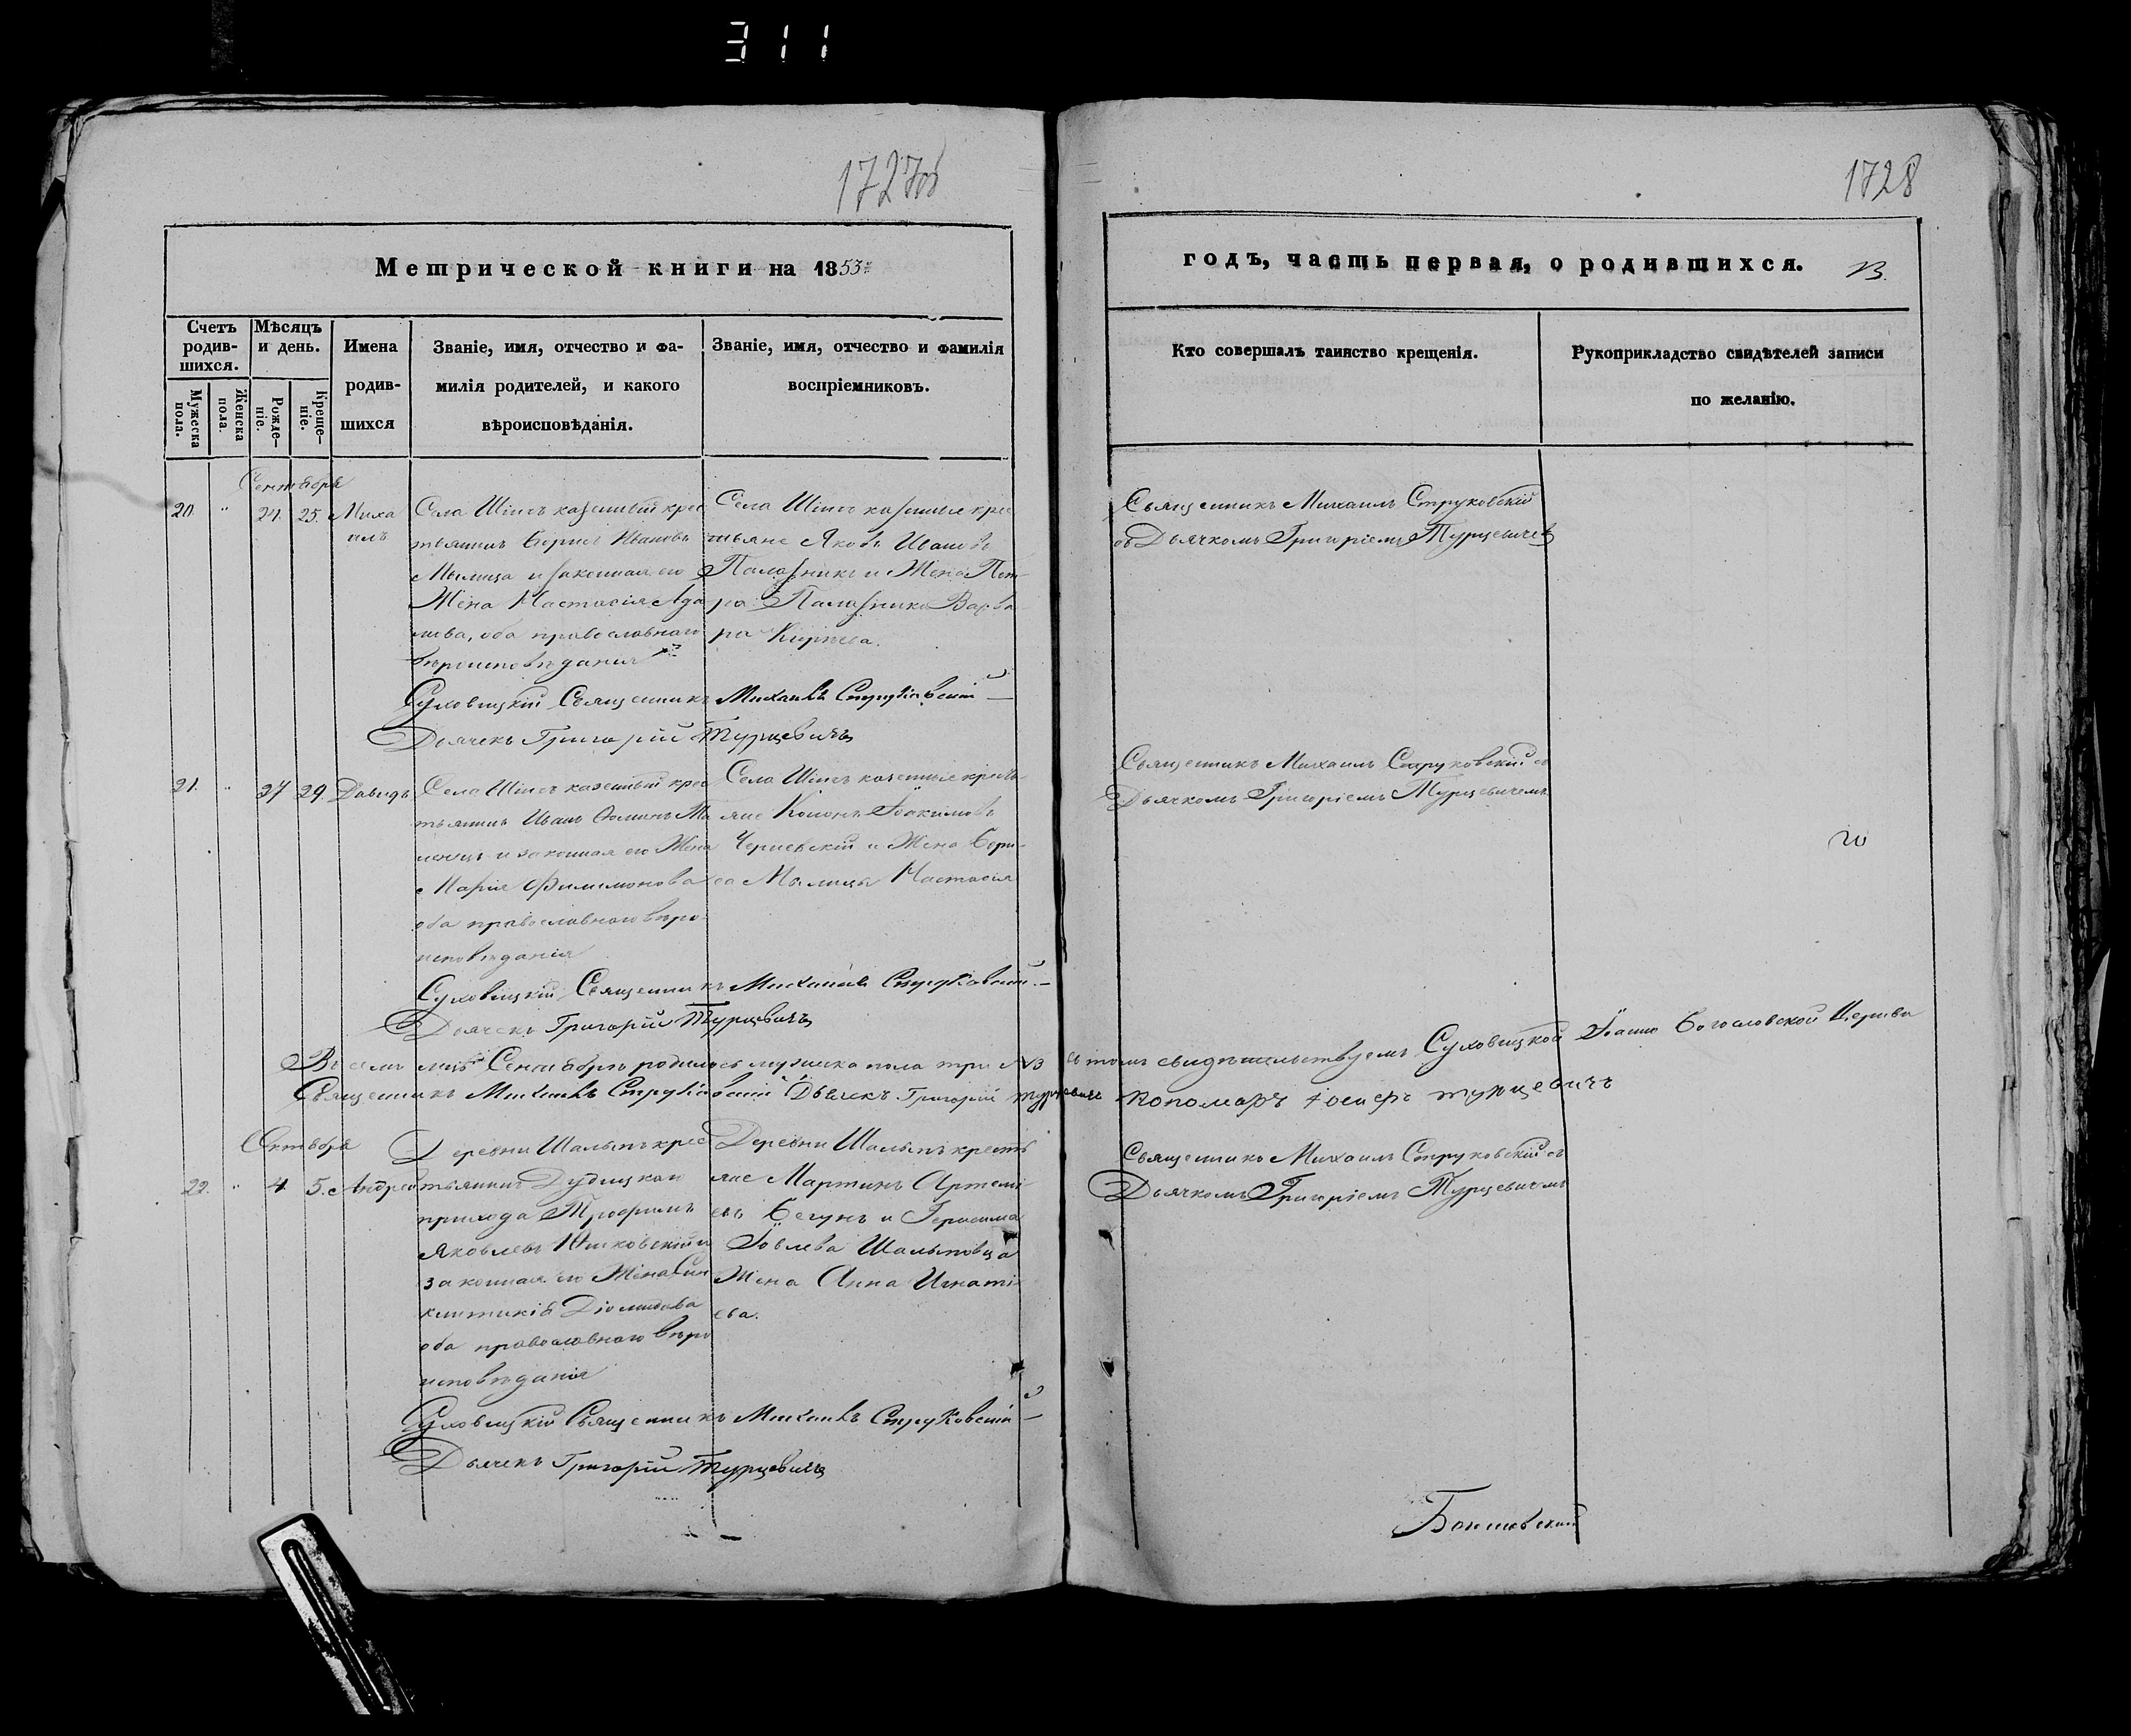 311
1727об
1728
Метрической книги на 1853й
годъ, часть первая, о родившихся.
Счетъ родив-шихся.
Мужеска пола.
Женска пола.
Мѣсяцъ и день.
Рожде-ніе.
Креще-ніе.
Имена
родив-
шихся
Званіе, имя, отчество и фа-
милія родителей, и какого
вѣроисповѣданія.
Званіе, имя, отчество и фамилія
воспріемниковъ.
Кто совершалъ таинство крещенія.
Рукоприкладство свидѣтелей записи
по желанію.
Сентября
20.
24.
25.
Миха
илъ
Села казенный крес
тьянинъ Борисъ Ивановъ
Мылица и законная его
Жена Настасія Ада
мова, оба православнаго
вѣроисповѣданія
Села казенные крес
тьяне Яковъ Ивановъ
и Жена Пет-
ра Варва-
ра
Священникъ Михаилъ Струковскій
съ Дьячкомъ Григоріемъ Турцевичем
Суховицкій Священникъ Михаилъ Струковскій
Дьячекъ Григорій Турцевичъ
21.
27
29.
Давидъ
Села казенный крес
тьянинъ Иванъ
и законная его Жена
Марія Филимонова
оба православнаго вѣро-
исповѣданія
Села казенные кресть-
яне Кононъ Іоакимовъ
Черневскій и Жена Бори-
са Мылицы Настасія
Священникъ Михаилъ Струковскій съ
Дьячкомъ Григоріемъ Турцевичемъ
Суховицкій Священникъ Михаилъ Струковскій
Дьячекъ Григорій Турцевичъ
Въ семъ Сентябрѣ родилось мужеска пола три №3 въ томъ свидѣтельствуемъ Суховицкой Іоанно Богословской Церкви
Священникъ Михаилъ Струковскій Дьячекъ Григорій Турцевичъ Пономарь Іосифъ Турцевичъ
Октября
22.
4.
5.
Андрей
Деревни крес
тьянинъ Дудицкого
прихода Трофимъ
Яковлевъ и
законная его Жена Син
клитикія Діомидова
оба православнаго вѣро
исповѣданія
Деревни кресть
яне Мартинъ Артемі
евъ Бегунъ и Герасима
Іовлева
Жена Анна Игнаті
ева.
Священникъ Михаилъ Струковскій съ
Дьячкомъ Григоріемъ Турцевичемъ
Суховицкій Священникъ Михаилъ Струковскій
Дьячекъ Григорій Турцевичъ